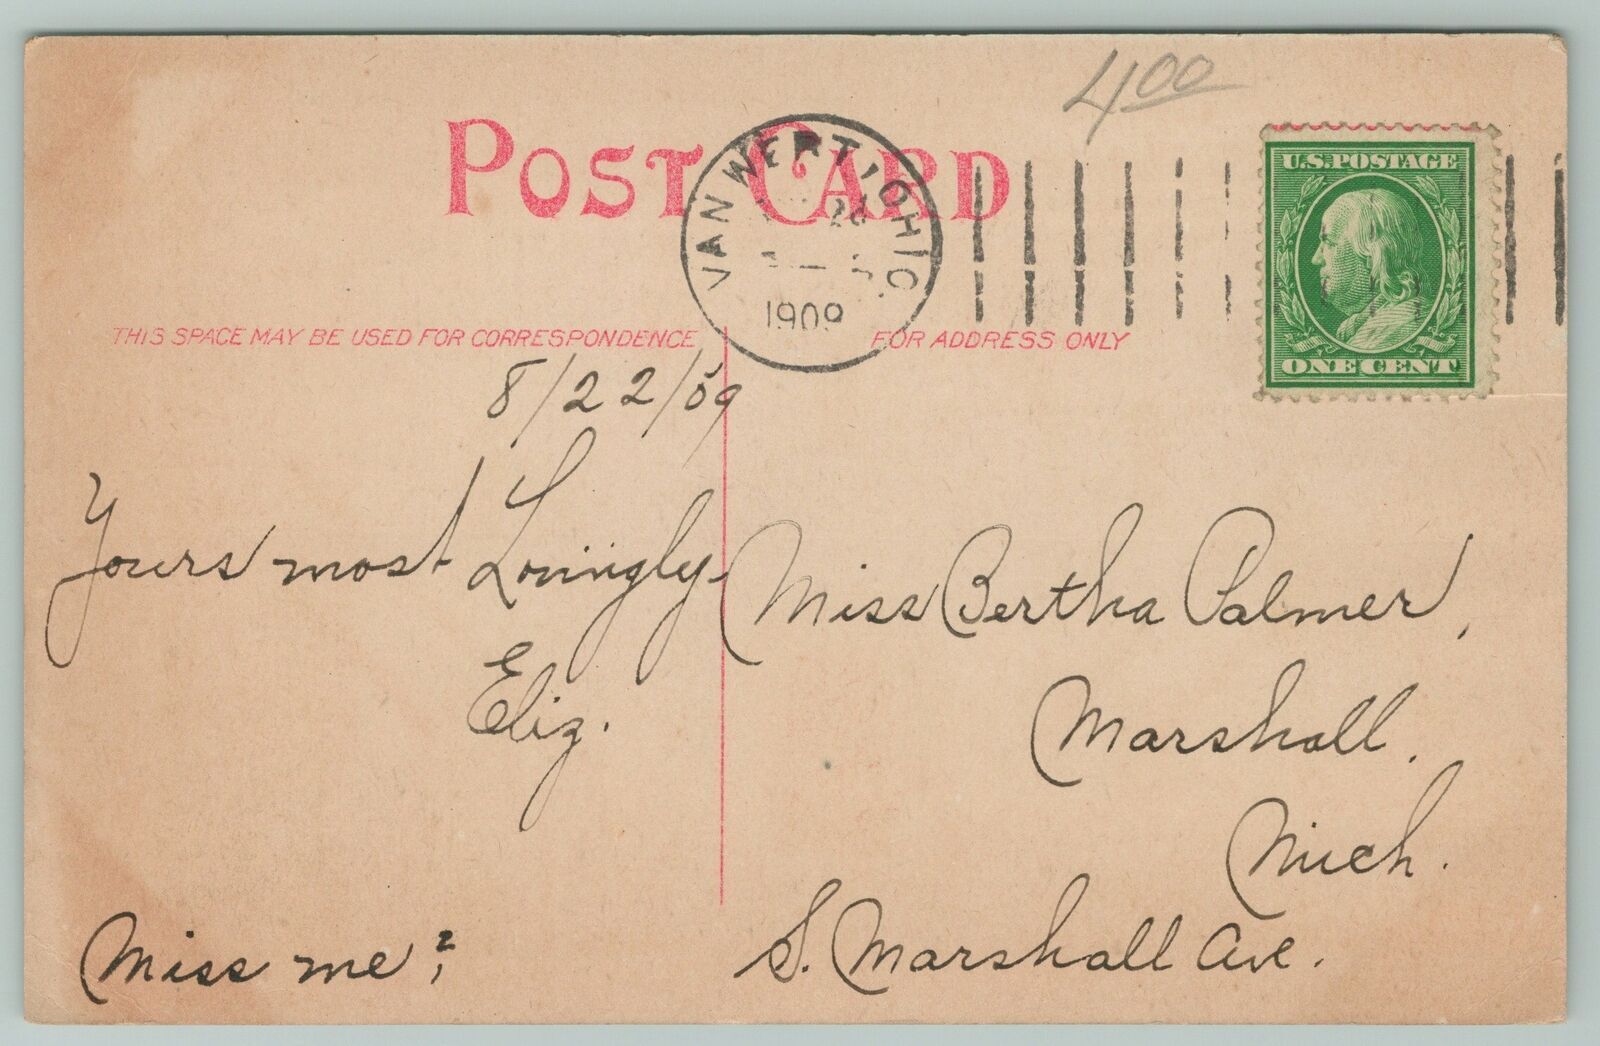 4 00
POST CARD
VAN WERT, OHIO.
1909
U.S. POSTAGE
ONE CENT
THIS SPACE MAY BE USED FOR CORRESPONDENCE
FOR ADDRESS ONLY
8/22/09
Yours most Lovingly
Eliz.
Miss me?
Miss Bertha Palmer,
Marshall.
Mich.
S. Marshall Ave.